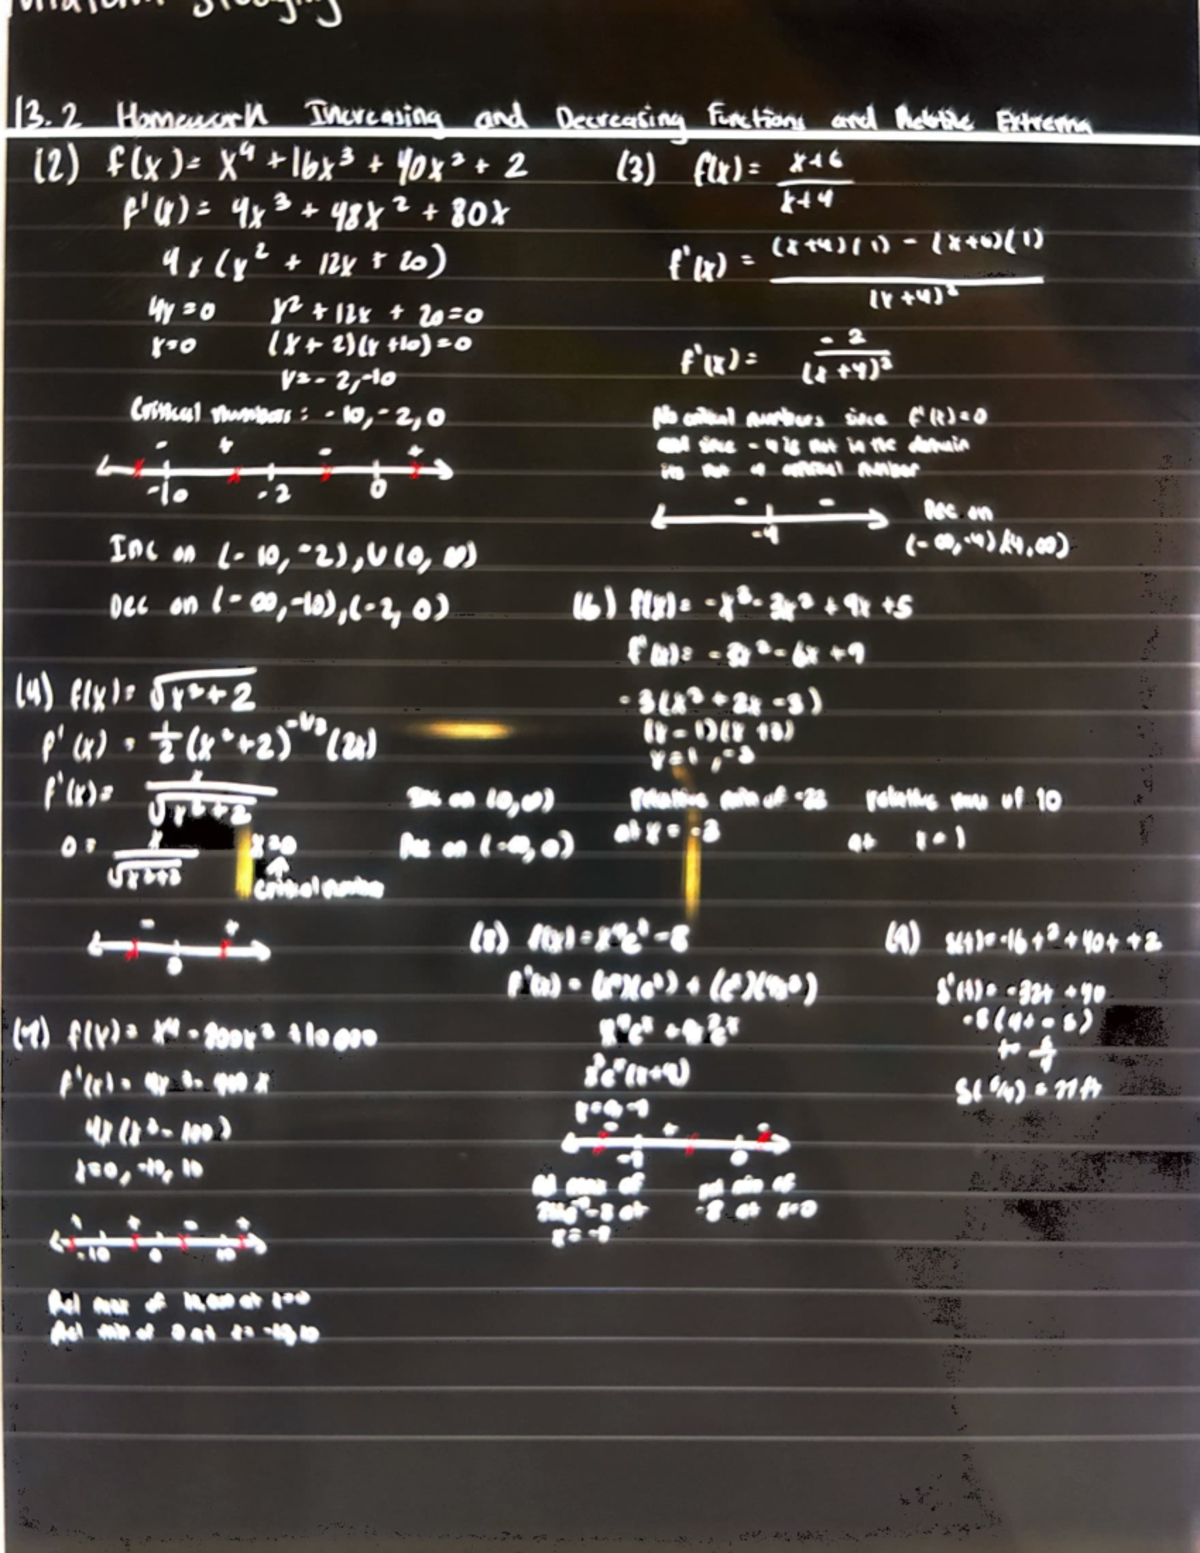 Midterm Studying
13.2 Homework Increasing and Decreasing Functions and Relative Extrema
(2) f(x) = x⁴ + 16x³ + 40x² + 2
f'(x) = 4x³ + 48x² + 80x
4x(x² + 12x + 20)
4x = 0 x² + 12x + 20 = 0
x = 0 (x + 2)(x + 10) = 0
x = -2, -10
Critical numbers: -10, -2, 0
- + - +
-10 -2 0
Inc on (-10, -2), U (0, ∞)
Dec on (-∞, -10), (-2, 0)
(3) f(x) = x+6 / x+4
f'(x) = (x+4)(1) - (x+6)(1) / (x+4)²
f'(x) = -2 / (x+4)²
No critical numbers since f'(x) = 0
and since -4 is not in the domain
its not a critical number
- -
-4
Dec on
(-∞, -4) (4, ∞)
(4) f(x) = √x² + 2
f'(x) = 1/2 (x² + 2)^-1/2 (2x)
f'(x) = x / √x² + 2
0 = x / √x²+2 x = 0
↑
critical number
- +
0
Inc on (0, ∞)
Dec on (-∞, 0)
(6) f(x) = -x³ - 3x² + 9x + 5
f'(x) = -3x² - 6x + 9
-3(x² + 2x - 3)
(x - 1)(x + 3)
x = 1, -3
relative min of -22
at x = -3
relative max of 10
at x = 1
(7) f(x) = x⁴ - 200x² + 10000
f'(x) = 4x³ - 400x
4x(x² - 100)
x = 0, -10, 10
- + - +
-10 0 10
Rel max of 10,000 at x=0
Rel min of 0 at x = -10, 10
(8) f(x) = x⁴eˣ - 8
f'(x) = (x⁴)(eˣ) + (eˣ)(4x³)
x⁴eˣ + 4x³eˣ
x³eˣ(x+4)
x = 0, -4
Rel max of
at
x = -4
rel min of
-8 at x=0
(9) s(t) = -16t² + 40t + 2
s'(t) = -32t + 40
-8(4t - 5)
t = 5/4
s(5/4) = 27 ft